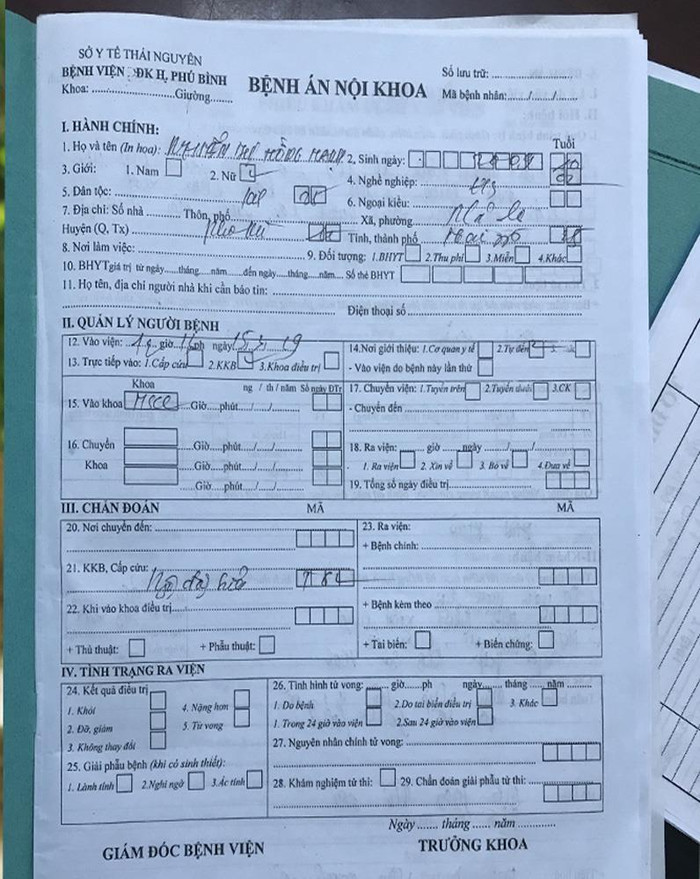 SỞ Y TẾ THÁI NGUYÊN
BỆNH VIỆN ĐK H. PHÚ BÌNH
Khoa:..............Giường.......
BỆNH ÁN NỘI KHOA
Số lưu trữ: ..............
Mã bệnh nhân:....../....../......
I. HÀNH CHÍNH:
Tuổi
1. Họ và tên (In hoa): 2. Sinh ngày:
3. Giới: 1. Nam 2. Nữ 4. Nghề nghiệp:
5. Dân tộc: 6. Ngoại kiều:
7. Địa chỉ: Số nhà .......... Thôn, phố Xã, phường
Huyện (Q, Tx) Tỉnh, thành phố
8. Nơi làm việc: 9. Đối tượng: 1.BHYT 2.Thu phí 3.Miễn 4.Khác
10. BHYT giá trị từ ngày.....tháng....năm......đến ngày.....tháng....năm.... Số thẻ BHYT
11. Họ tên, địa chỉ người nhà khi cần báo tin:
Điện thoại số
II. QUẢN LÝ NGƯỜI BỆNH
12. Vào viện: giờ ph ngày
13. Trực tiếp vào: 1.Cấp cứu 2.KKB 3.Khoa điều trị
14.Nơi giới thiệu: 1.Cơ quan y tế 2.Tự đến 3.
- Vào viện do bệnh này lần thứ
Khoa ng / th / năm Số ngày ĐTr
15. Vào khoa ...Giờ....phút..../...../.....
16. Chuyển ...Giờ....phút..../...../.....
Khoa ...Giờ....phút..../...../.....
...Giờ....phút..../...../.....
17. Chuyển viện: 1.Tuyến trên 2.Tuyến dưới 3.CK
- Chuyển đến
18. Ra viện: giờ ngày ....../....../......
1. Ra viện 2. Xin về 3. Bỏ về 4.Đưa về
19. Tổng số ngày điều trị
III. CHẨN ĐOÁN MÃ MÃ
20. Nơi chuyển đến:
21. KKB, Cấp cứu:
22. Khi vào khoa điều trị
+ Thủ thuật: + Phẫu thuật:
23. Ra viện:
+ Bệnh chính:
+ Bệnh kèm theo
+ Tai biến: + Biến chứng:
IV. TÌNH TRẠNG RA VIỆN
24. Kết quả điều trị
1. Khỏi 4. Nặng hơn
2. Đỡ, giảm 5. Tử vong
3. Không thay đổi
25. Giải phẫu bệnh (khi có sinh thiết):
1. Lành tính 2.Nghi ngờ 3.Ác tính
26. Tình hình tử vong: ........giờ......ph ngày....... tháng ...... năm .........
1. Do bệnh 2.Do tai biến điều trị 3. Khác
1. Trong 24 giờ vào viện 2.Sau 24 giờ vào viện
27. Nguyên nhân chính tử vong:
28. Khám nghiệm tử thi: 29. Chẩn đoán giải phẫu tử thi:
Ngày ....... tháng ...... năm .............
GIÁM ĐỐC BỆNH VIỆN TRƯỞNG KHOA